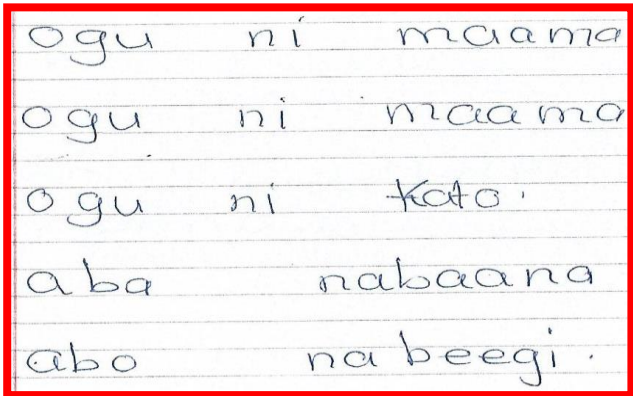 ogu ni maama
ogu ni maama
ogu ni Kato.
aba nabaana
abo na beegi.